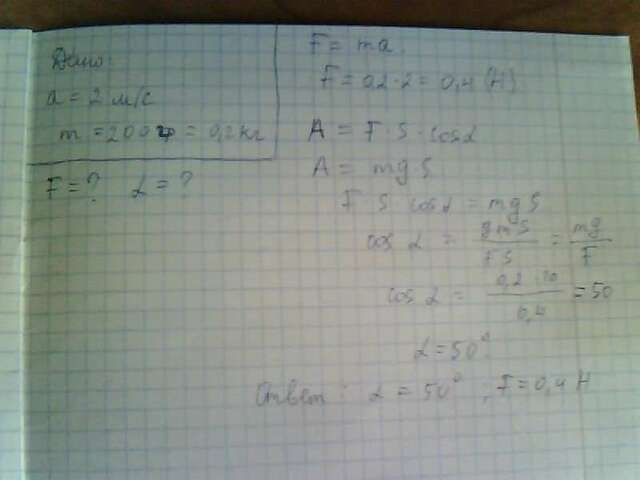 Дано:
a = 2 м/с
m = 200 г = 0,2 кг
F = ? α = ?
F = ma.
F = 0,2 · 2 = 0,4 (Н)
A = F · S · cosα
A = mgS
F S cosα = mgS
cos α = gmS / FS = mg / F
cos α = 0,2 · 10 / 0,4 = 50
α = 50°
Ответ: α = 50° ; F = 0,4 Н